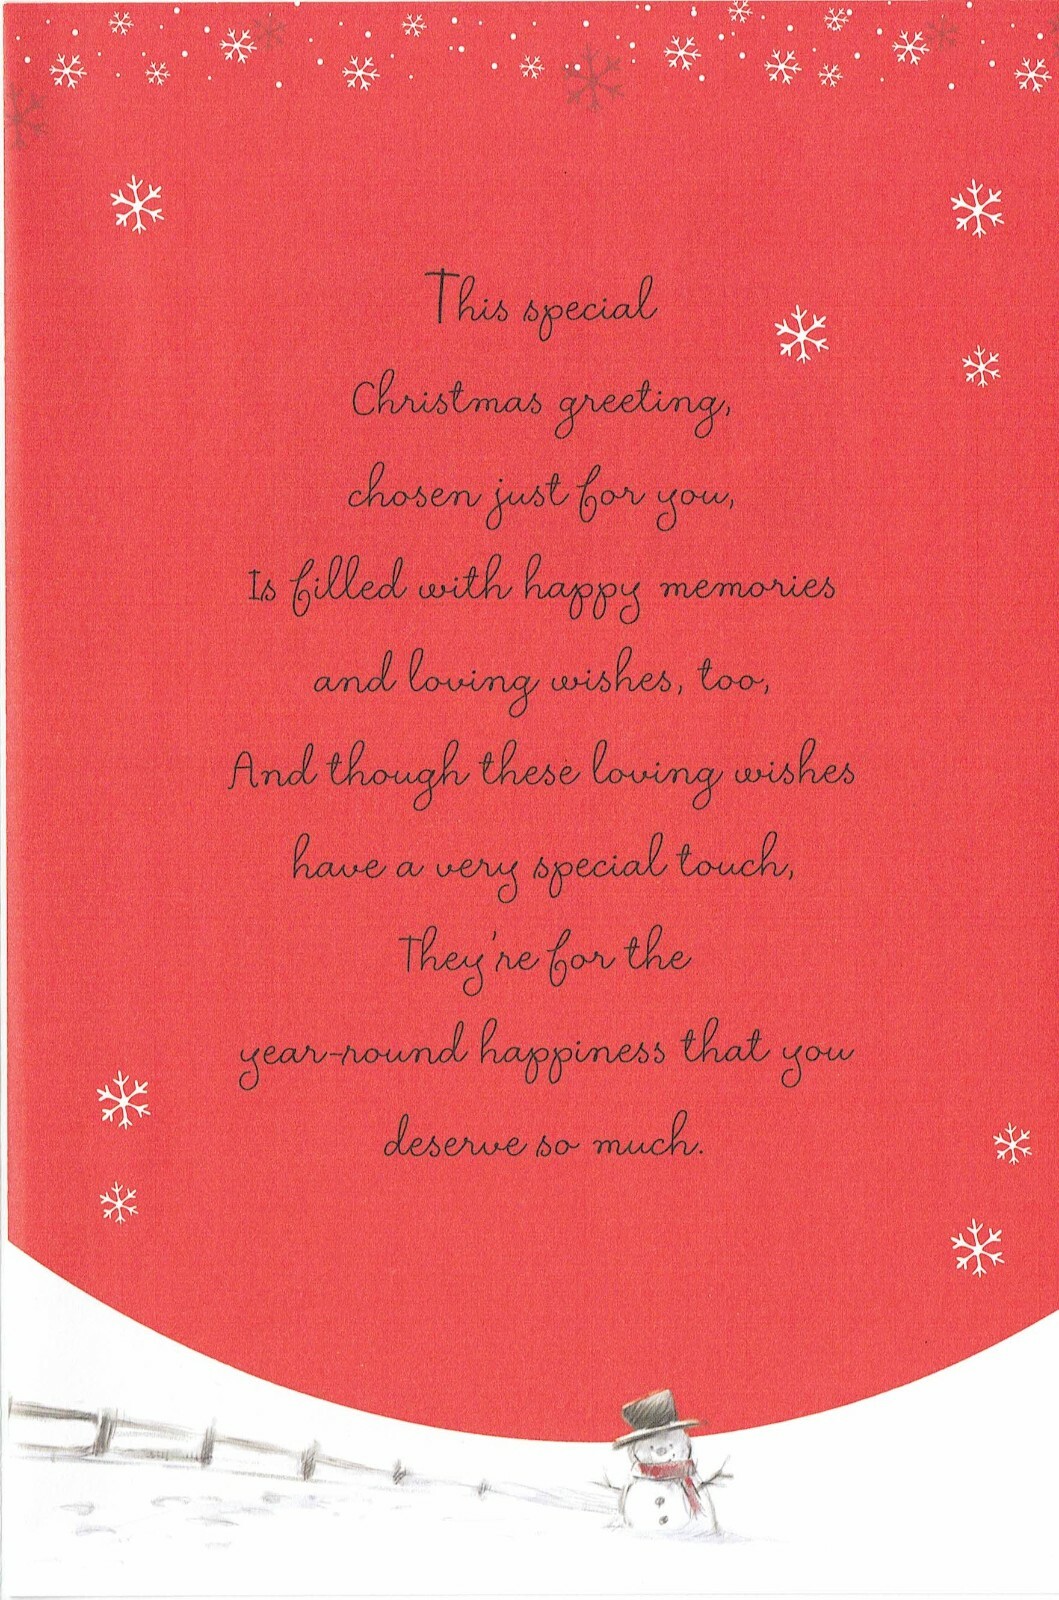 This special
Christmas greeting,
chosen just for you,
Is filled with happy memories
and loving wishes, too,
And though these loving wishes
have a very special touch,
They're for the
year-round happiness that you
deserve so much.